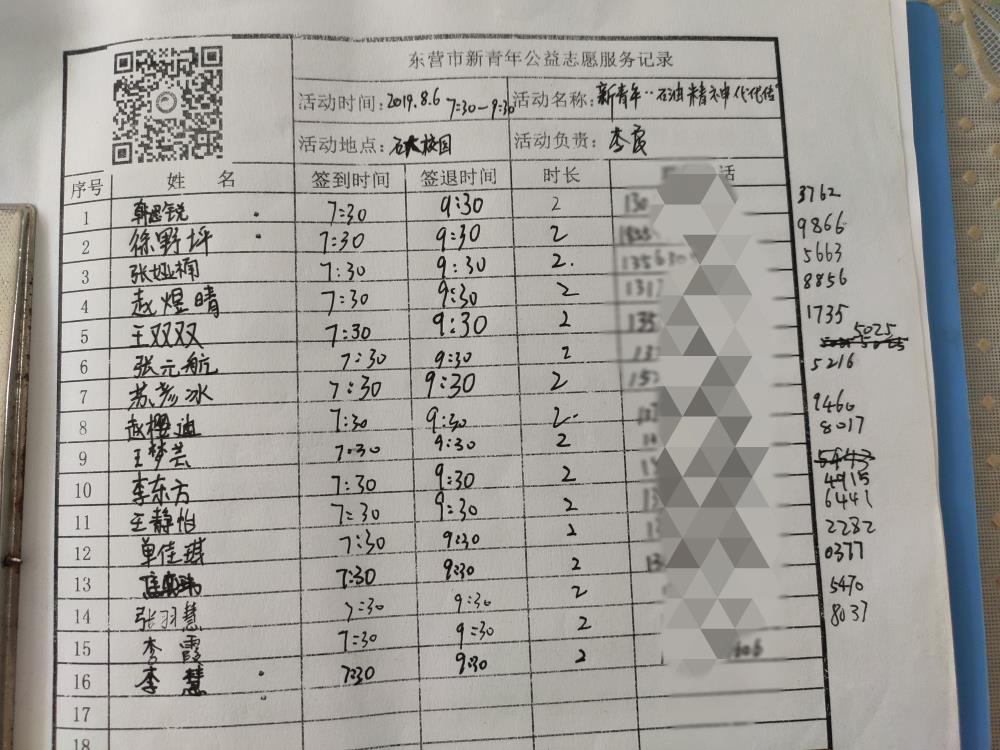 东营市新青年公益志愿服务记录
活动时间:2019.8.6 7:30-9:30 活动名称:新青年··石油精神代代传
活动地点:石大校园 活动负责:李霞
序号 姓名 签到时间 签退时间 时长 话
1 韩思锐 7:30 9:30 2 130 3762
2 徐野坪 7:30 9:30 2 9866
3 张娅楠 7:30 9:30 2. 135630 5663
4 赵煜晴 7:30 9:30 2 131 8856
5 王双双 7:30 9:30 2 135 1735
6 张元航 7:30 9:30 2 13 5025
7 苏彦冰 7:30 9:30 2 152 5216
8 赵樱迪 7:30 9:30 2 9460
9 王梦芸 7:30 9:30 2 8017
10 李东方 7:30 9:30 2 4915
11 王静怡 7:30 9:30 2 6441
12 单佳琪 7:30 9:30 2 2282
13 7:30 9:30 2 0377
14 张羽慧 7:30 9:30 2 5470
15 李霞 7:30 9:30 2 8037
16 李慧 7:30 9:30 2 606
17
18